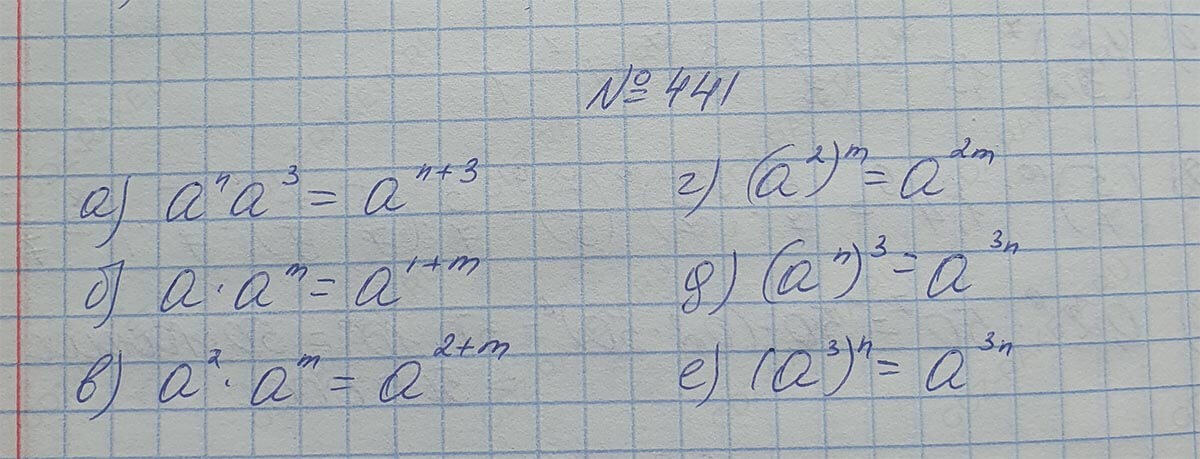 № 441
а) aⁿa³ = aⁿ⁺³
б) a · aᵐ = a¹⁺ᵐ
в) a² · aᵐ = a²⁺ᵐ
г) (a²)ᵐ = a²ᵐ
д) (aⁿ)³ = a³ⁿ
е) (a³)ⁿ = a³ⁿ